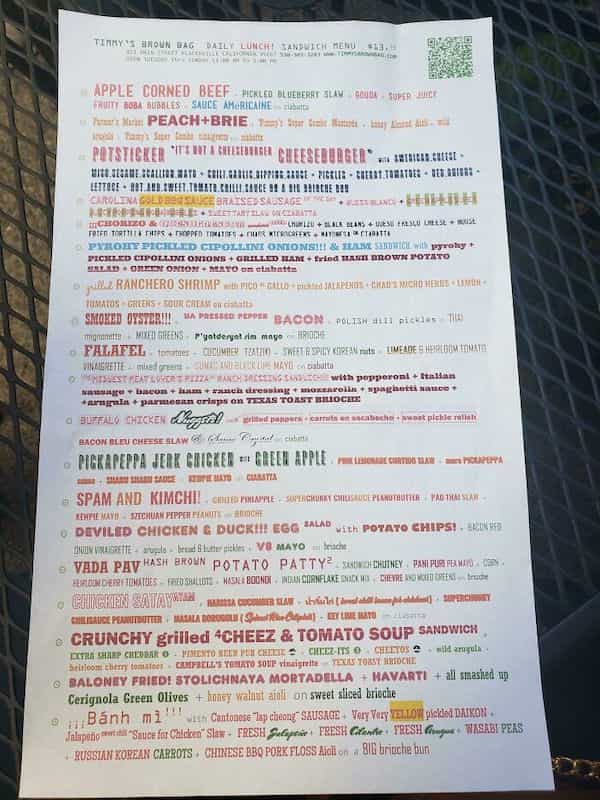 TIMMY'S BROWN BAG DAILY LUNCH! SANDWICH MENU $13.
MAIN STREET PLACERVILLE CALIFORNIA 530-303-3203 WWW.TIMMYSBROWNBAG.COM
OPEN TUESDAY thru SUNDAY 11:00 AM to 3:00 PM
APPLE CORNED BEEF + PICKLED BLUEBERRY SLAW + GOUDA + SUPER JUICY
FRUITY BOBA BUBBLES + SAUCE AMéRICAINE on ciabatta
Farmer's Market PEACH+BRIE + Timmy's Super Combo Mustarda + honey Almond Aioli + wild
arugula + Timmy's Super Combo vinaigrette on ciabatta
POTSTICKER "IT'S NOT A CHEESEBURGER CHEESEBURGER" with AMERICAN CHEESE +
MISO.SESAME.SCALLION.MAYO + CHILI.GARLIC.DIPPING.SAUCE + PICKLES + CHERRY.TOMATOES + RED.ONIONS +
LETTUCE + HOT.AND.SWEET.TOMATO.CHILLI.SAUCE on a BIG BRIOCHE BUN
CAROLINA GOLD BBQ SAUCE BRAISED SAUSAGE OF THE DAY + QUESO BLANCO +
+ SWEET TART SLAW ON CIABATTA
CHORIZO & CHORIZO + BLACK BEANS + QUESO FRESCO CHEESE + HOUSE
FRIED TORTILLA CHIPS + CHOPPED TOMATOES + CHAD'S MICROGREENS + MAYONESA ON CIABATTA
PYROHY PICKLED CIPOLLINI ONIONS!!! & HAM SANDWICH with pyrohy +
PICKLED CIPOLLINI ONIONS + GRILLED HAM + fried HASH BROWN POTATO
SALAD + GREEN ONION + MAYO on ciabatta
grilled RANCHERO SHRIMP with PICO de GALLO + pickled JALAPENOS + CHAD'S MICRO HERBS + LEMON +
TOMATOS + GREENS + SOUR CREAM on ciabatta
SMOKED OYSTER!!! + UA PRESSED PEPPER BACON + POLISH dill pickles + TUXI
mignonette + MIXED GREENS + P'yatdesyat rim mayo on BRIOCHE
FALAFEL + tomatoes + CUCUMBER TZATZIKI + SWEET & SPICY KOREAN nuts + LIMEADE & HEIRLOOM TOMATO
VINAIGRETTE + mixed greens + SUMAC AND BLACK LIME MAYO on ciabatta
THE MIDWEST MEAT LOVER'S PIZZA & RANCH DRESSING SANDWICH!!! with pepperoni + Italian
sausage + bacon + ham + ranch dressing + mozzarella + spaghetti sauce +
+arugula + parmesan crisps on TEXAS TOAST BRIOCHE
BUFFALO CHICKEN Nuggets! with grilled peppers + carrots en escabeche + sweet pickle relish
BACON BLEU CHEESE SLAW & Sauce Crystal on ciabatta
PICKAPEPPA JERK CHICKEN with GREEN APPLE + PINK LEMONADE CURTIDO SLAW + more PICKAPEPPA
sauce + SHABU SHABU SAUCE + KEWPIE MAYO on CIABATTA
SPAM AND KIMCHI! + GRILLED PINEAPPLE + SUPERCHUNKY CHILISAUCE PEANUTBUTTER + PAD THAI SLAW +
KEWPIE MAYO + SZECHUAN PEPPER PEANUTS on BRIOCHE
DEVILED CHICKEN & DUCK!!! EGG SALAD with POTATO CHIPS! + BACON RED
ONION VINAIGRETTE + arugula + bread & butter pickles + V8 MAYO on brioche
VADA PAV HASH BROWN POTATO PATTY² + SANDWICH CHUTNEY + PANI PURI PEA MAYO + CORN +
HEIRLOOM CHERRY TOMATOES + FRIED SHALLOTS + MASALA BOONDI + INDIAN CORNFLAKE SNACK MIX + CHEVRE AND MIXED GREENS on brioche
CHICKEN SATAY + HARISSA CUCUMBER SLAW + + SUPERCHUNKY
CHILISAUCE PEANUTBUTTER + MASALA + KEY LIME MAYO on ciabatta
CRUNCHY grilled ⁴CHEEZ & TOMATO SOUP SANDWICH +
EXTRA SHARP CHEDDAR + PIMENTO BEER PUB CHEESE + CHEEZ-ITS + CHEETOS + wild arugula +
heirloom cherry tomatoes + CAMPBELL'S TOMATO SOUP vinaigrette on TEXAS TOAST BRIOCHE
BALONEY FRIED! STOLICHNAYA MORTADELLA + HAVARTI + all smashed up
Cerignola Green Olives + honey walnut aioli on sweet sliced brioche
¡¡¡Bánh mì!!! with Cantonese "lap cheong" SAUSAGE + Very Very YELLOW pickled DAIKON +
Jalapeño sweet chili "Sauce for Chicken" Slaw + FRESH Jalapeño + FRESH Cilantro + FRESH Arugua + WASABI PEAS
+ RUSSIAN KOREAN CARROTS + CHINESE BBQ PORK FLOSS Aioli on a BIG brioche bun